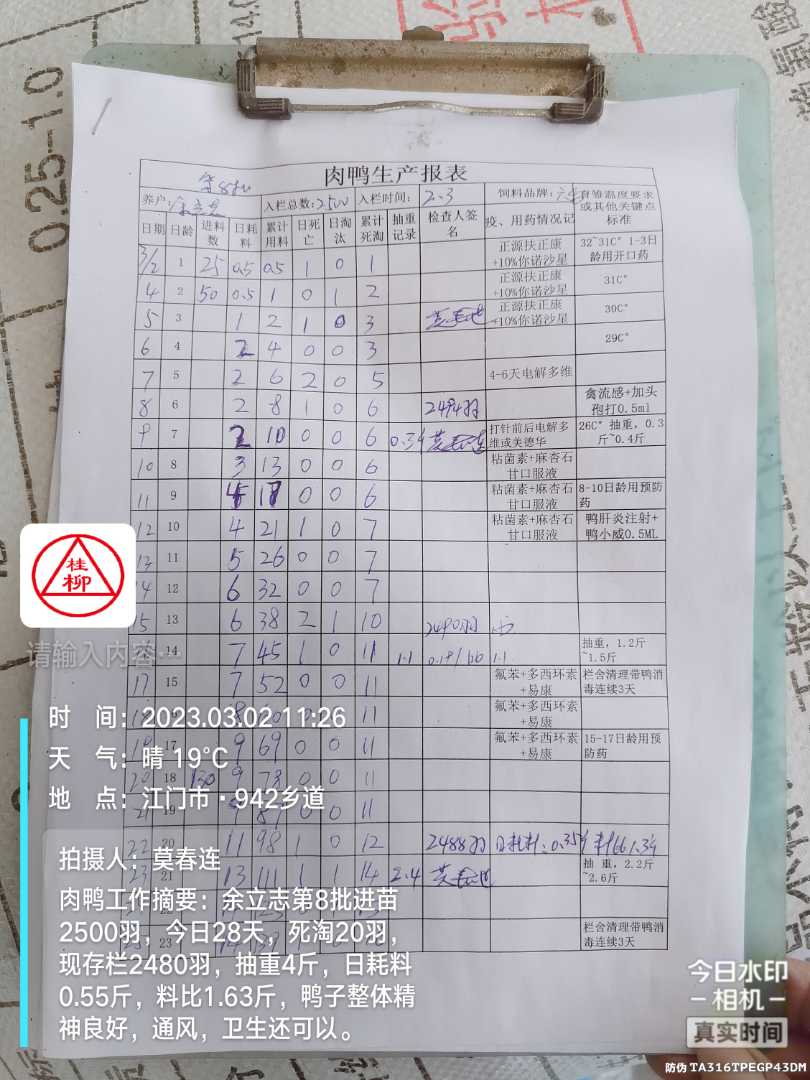 0.25-1.0
肉鸭生产报表
第8批
养户: 入栏总数:2500 入栏时间: 2.3 饲料品牌: 育雏温度要求或其他关键点标准
日期 日龄 进料数 日耗料 累计用料 日死亡 日淘汰 累计死淘 抽重记录 检查人签名 疫、用药情况记
3/2 1 25 0.5 0.5 1 0 1 正源扶正康+10%你诺沙星 32~31C° 1-3日龄用开口药
4 2 50 0.5 1 0 1 2 正源扶正康+10%你诺沙星 31C°
5 3 1 2 1 0 3 正源扶正康+10%你诺沙星 30C°
6 4 2 4 0 0 3 29C°
7 5 2 6 2 0 5 4-6天电解多维
8 6 2 8 1 0 6 2494羽 禽流感+加头孢打0.5ml
9 7 2 10 0 0 6 打针前后电解多维或美德华 26C° 抽重，0.3斤~0.4斤
10 8 3 13 0 0 6 粘菌素+麻杏石甘口服液
11 9 4 17 0 0 6 粘菌素+麻杏石甘口服液 8-10日龄用预防药
12 10 4 21 1 0 7 粘菌素+麻杏石甘口服液 鸭肝炎注射+鸭小威0.5ML
13 11 5 26 0 0 7
14 12 6 32 0 0 7
15 13 6 38 2 1 10 2490羽
14 7 45 1 0 11 1.1 1.1 抽重，1.2斤~1.5斤
17 15 7 52 0 0 11 氟苯+多西环素+易康 栏舍清理带鸭消毒连续3天
11 氟苯+多西环素+易康
17 9 69 0 0 11 氟苯+多西环素+易康 15-17日龄用预防药
20 18 130 9 78 0 0 11
21 19 9 87 0 0 11
22 20 11 98 1 0 12 2488羽 日耗料:0.35斤
23 21 13 111 1 1 14 2.4 抽重，2.2斤~2.6斤
22
23 栏舍清理带鸭消毒连续3天
桂柳
请输入内容…
时 间：2023.03.02 11:26
天 气：晴 19℃
地 点：江门市·942乡道
拍摄人：莫春连
肉鸭工作摘要：余立志第8批进苗
2500羽，今日28天，死淘20羽，
现存栏2480羽，抽重4斤，日耗料
0.55斤，料比1.63斤，鸭子整体精
神良好，通风，卫生还可以。
今日水印
相机
真实时间
防伪 TA316TPEGP43DM